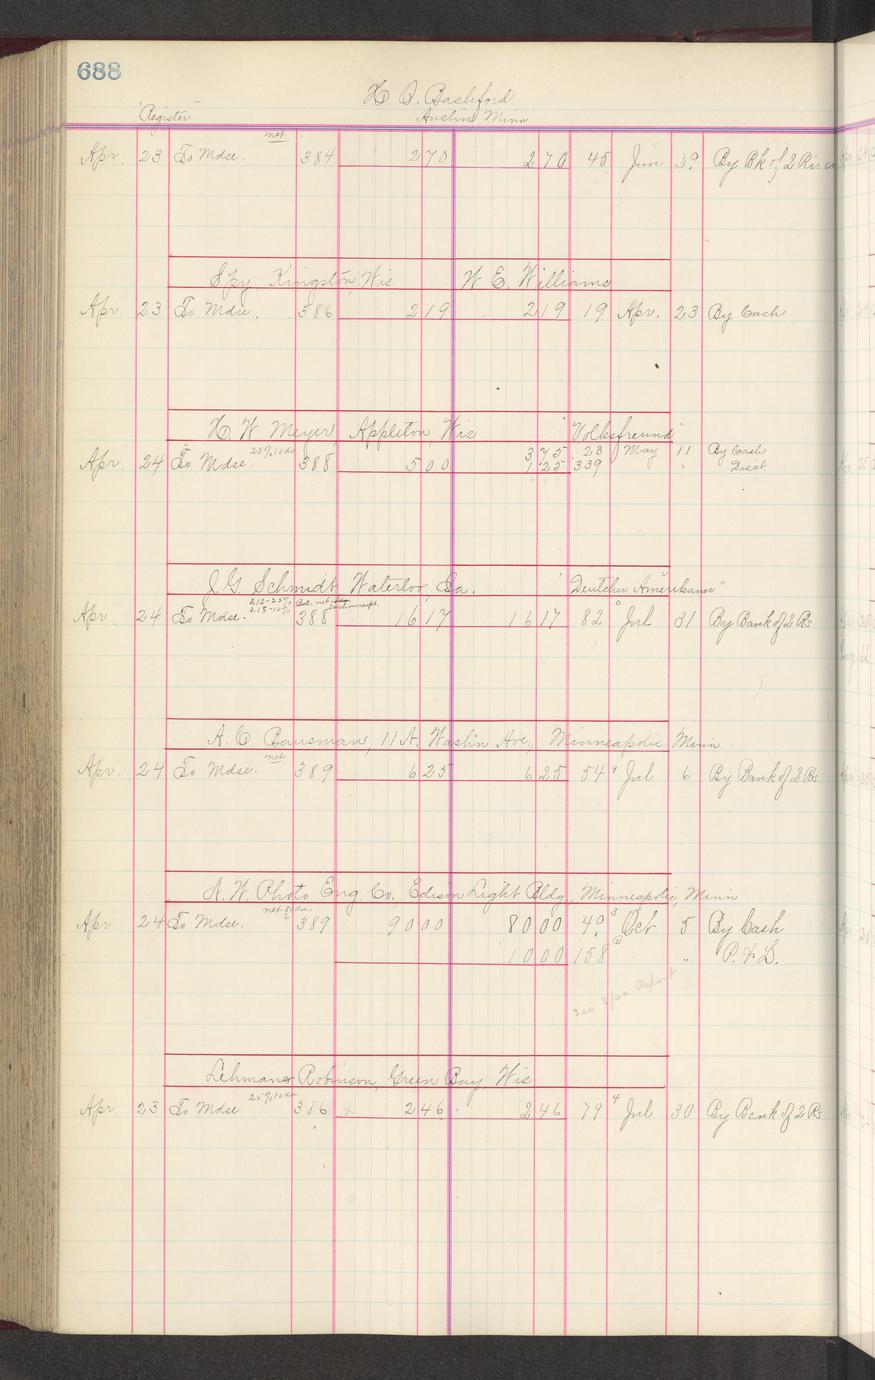 688
H. O. Bashford
"Register" Austin, Minn
Apr. 23 To Mdse. net 384 2 70 2 70 45 Jun 29 By Bk of 2 Rivers
Spy Kingston, Wis W. E. Williams
Apr. 23 To Mdse. 386 2 19 2 19 19 Apr. 23 By Cash
H. W. Meyer, Appleton, Wis "Volksfreund"
Apr. 24 To Mdse. 25% 10 da 388 5 00 3 75 23 May 11 By Cash
1 25 339 " Disct.
J. G. Schmidt Waterloo, Ia. "Deutcher Amerikaner"
3.12-25%
Apr 24 To Mdse. 3.15-10% 388 16 17 16 17 82 Jul 31 By Bank of 2 Rs
A. C. Bausman, 11 N. Washn Ave, Minneapolis Minn.
Apr. 24 To Mdse. net 389 6 25 6 25 54 4 Jul 6 By Bank of 2 Rs
N. W. Photo Eng. Co. Edison Light Bldg., Minneapolis, Minn
Apr. 24 To Mdse. net 389 90 00 80 00 49 3 Oct 5 By Cash
10 00 158 " P. & L.
See Spec Report
Lehman & Robinson, Green Bay Wis
Apr 23 To Mdse 25% 10 da 386 2 46 2 46 79 4 Jul 30 By Bank of 2 Rs